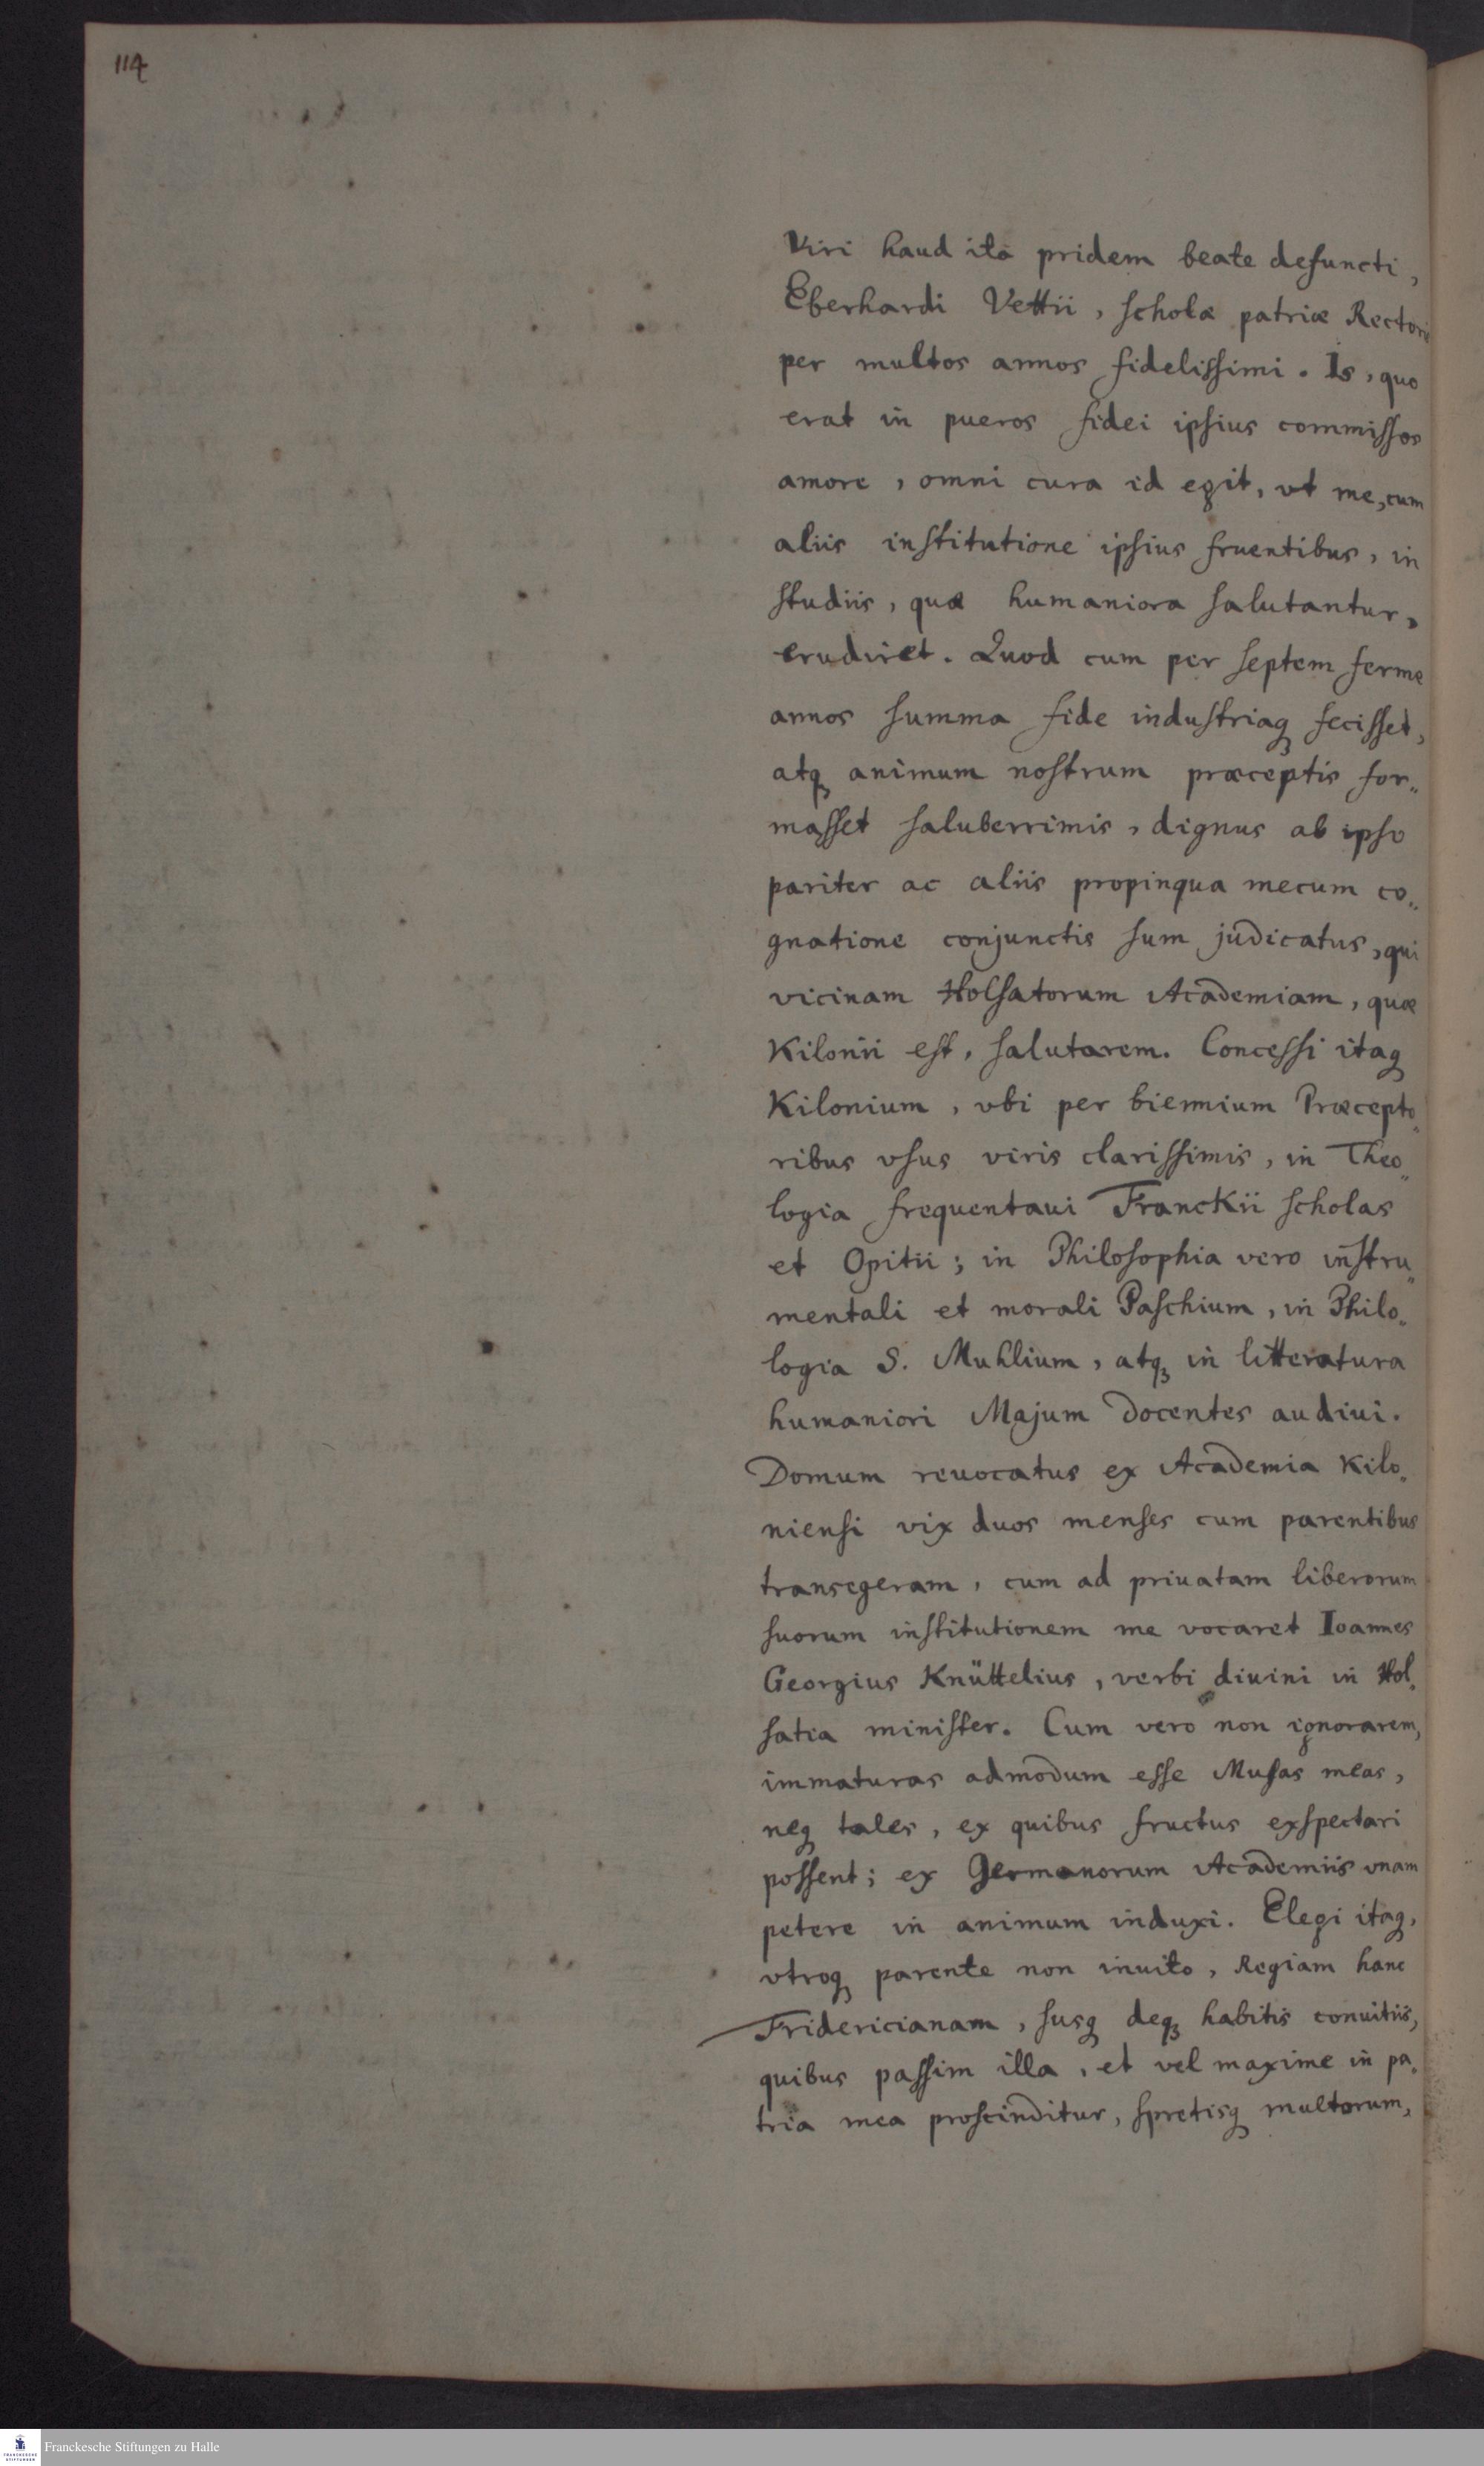 114
Viri haud ita pridem beate defuncti,
Eberhardi Vettii, scholæ patriæ Rectoris
per multos annos fidelissimi. Is, quo
erat in pueros fidei ipsius commissos
amore, omni cura id egit, vt me, cum
aliis institutione ipsius fruentibus, in
studiis, quæ humaniora salutantur,
erudiret. Quod cum per septem ferme
annos summa fide industriaq; fecisset,
atq; animum nostrum præceptis for„
masset saluberrimis, dignus ab ipso
pariter ac aliis propinqua mecum co„
gnatione conjunctis sum judicatus, qui
vicinam Holsatorum Academiam, quæ
Kilonii est, salutarem. Concessi itaq;
Kilonium, vbi per biennium Præcepto„
ribus vsus viris clarissimis, in Theo„
logia frequentaui Franckii scholas
et Opitii; in Philosophia vero instru„
mentali et morali Paschium, in Philo„
logia S. Muhlium, atq; in litteratura
humaniori Majum docentes audiui.
Domum reuocatus ex Academia Kilo„
niensi vix duos menses cum parentibus
transegeram, cum ad priuatam liberorum
suorum institutionem me vocaret Ioannes
Georgius Knüttelius, verbi diuini in Hol„
satia minister. Cum vero non ignorarem,
immaturas admodum esse Musas meas,
neq; tales, ex quibus fructus exspectari
possent; ex Germanorum Academiis vnam
petere in animum induxi. Elegi itaq;,
vtroq; parente non inuito, Regiam hanc
Fridericianam, susq; deq; habitis conuitiis,
quibus passim illa, et vel maxime in pa„
tria mea proscinditur, spretisq; multorum,
FRANCKESCHE STIFTUNGEN
Franckesche Stiftungen zu Halle